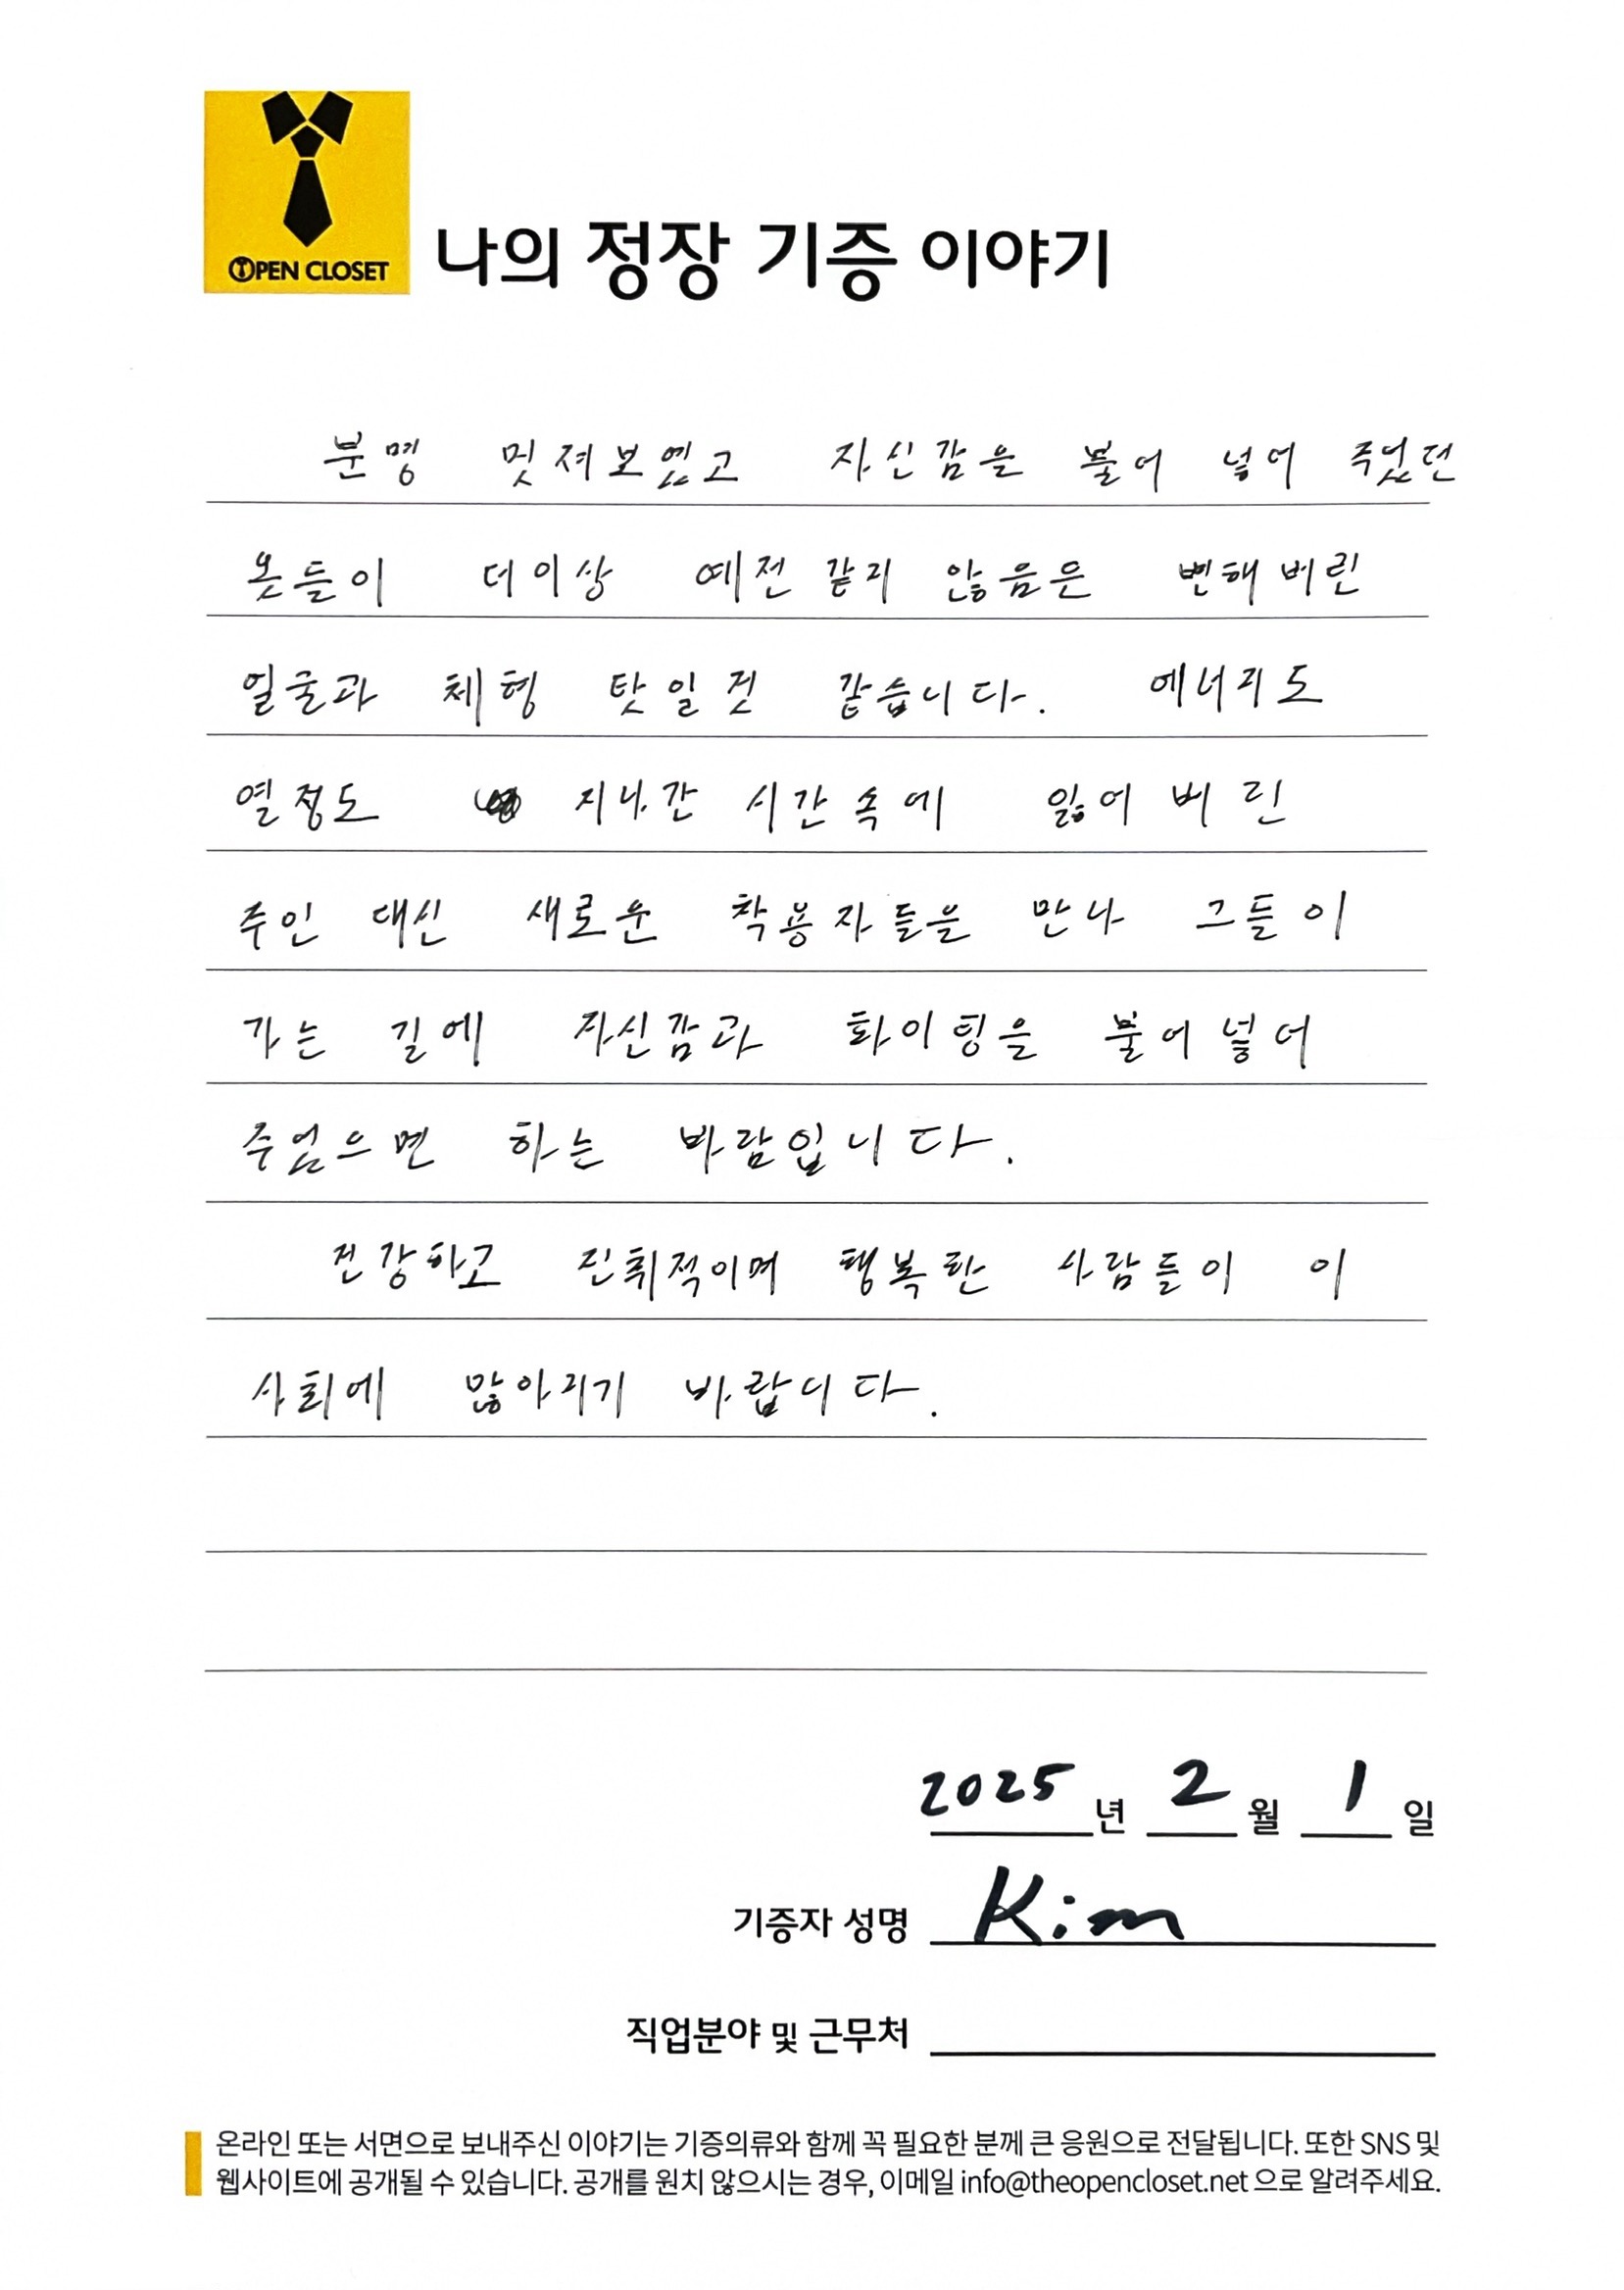 OPEN CLOSET
나의 정장 기증 이야기
분명 멋져보였고 자신감을 불어 넣어 주었던
옷들이 더이상 예전 같지 않음은 변해버린
얼굴과 체형 탓일것 같습니다. 에너지도
열정도 지나간 시간속에 잃어버린
주인 대신 새로운 착용자들을 만나 그들이
가는 길에 자신감과 화이팅을 불어넣어
주었으면 하는 바람입니다.
건강하고 진취적이며 행복한 사람들이 이
사회에 많아지기 바랍니다.
2025년 2월 1일
기증자 성명 Kim
직업분야 및 근무처
온라인 또는 서면으로 보내주신 이야기는 기증의류와 함께 꼭 필요한 분께 큰 응원으로 전달됩니다. 또한 SNS 및
웹사이트에 공개될 수 있습니다. 공개를 원치 않으시는 경우, 이메일 info@theopencloset.net 으로 알려주세요.